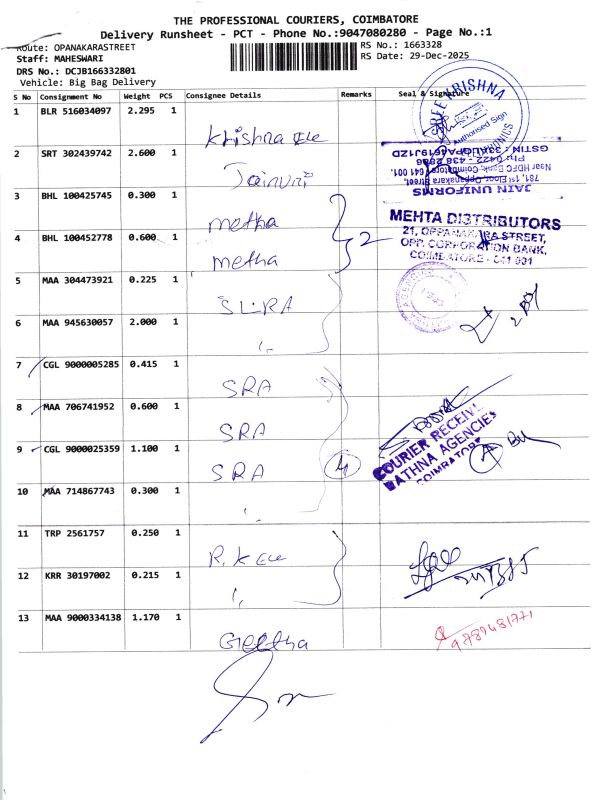 THE PROFESSIONAL COURIERS, COIMBATORE
Delivery Runsheet - PCT - Phone No.:9047080280 - Page No.:1
Route: OPANAKARASTREET
RS No.: 1663328
Staff: MAHESWARI
RS Date: 29-Dec-2025
DRS No.: DCJB166332801
Vehicle: Big Bag Delivery
S No Consignment No Weight PCS Consignee Details Remarks Seal & Signature
1 BLR 516034097 2.295 1 Krishna Ele
2 SRT 302439742 2.600 1 Jain uni
3 BHL 100425745 0.300 1 metha
4 BHL 100452778 0.600 1 metha
2
5 MAA 304473921 0.225 1
6 MAA 945630057 2.000 1 "
7 CGL 9000005285 0.415 1 SRA
8 MAA 706741952 0.600 1 SRA
9 CGL 9000025359 1.100 1 SRA
4
10 MAA 714867743 0.300 1 "
11 TRP 2561757 0.250 1 R.K Ele
12 KRR 30197002 0.215 1 "
13 MAA 9000334138 1.170 1 Geetha
SREE KRISHNA
Authorised Sign
JAIN UNIFORMS
781, 1st Floor, Oppanakara Street,
Near HDFC Bank, Coimbatore - 641 001.
Ph: 0422 - 438 2886
MEHTA DISTRIBUTORS
21, OPPANAKARA STREET,
OPP. CORPORATION BANK,
COIMBATORE - 641 001
COURIER RECEIVE
RATHNA AGENCIES
COIMBATORE